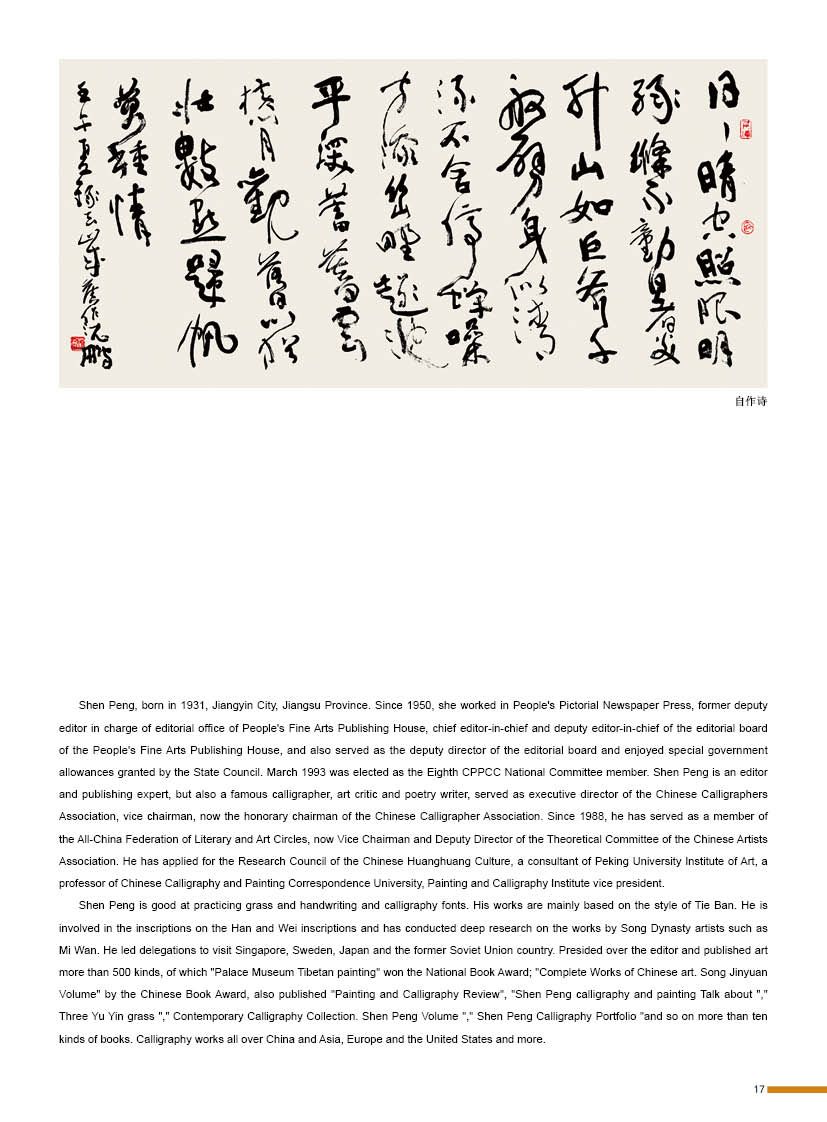 晴空照眼明
不動
山如巨斧千
身
不舍停蟬噪
野趣池
平
月觀落日
壯數點歸帆
萬種情
壬午夏錄舊作沈鵬
自作诗
Shen Peng, born in 1931, Jiangyin City, Jiangsu Province. Since 1950, she worked in People's Pictorial Newspaper Press, former deputy
editor in charge of editorial office of People's Fine Arts Publishing House, chief editor-in-chief and deputy editor-in-chief of the editorial board
of the People's Fine Arts Publishing House, and also served as the deputy director of the editorial board and enjoyed special government
allowances granted by the State Council. March 1993 was elected as the Eighth CPPCC National Committee member. Shen Peng is an editor
and publishing expert, but also a famous calligrapher, art critic and poetry writer, served as executive director of the Chinese Calligraphers
Association, vice chairman, now the honorary chairman of the Chinese Calligrapher Association. Since 1988, he has served as a member of
the All-China Federation of Literary and Art Circles, now Vice Chairman and Deputy Director of the Theoretical Committee of the Chinese Artists
Association. He has applied for the Research Council of the Chinese Huanghuang Culture, a consultant of Peking University Institute of Art, a
professor of Chinese Calligraphy and Painting Correspondence University, Painting and Calligraphy Institute vice president.
Shen Peng is good at practicing grass and handwriting and calligraphy fonts. His works are mainly based on the style of Tie Ban. He is
involved in the inscriptions on the Han and Wei inscriptions and has conducted deep research on the works by Song Dynasty artists such as
Mi Wan. He led delegations to visit Singapore, Sweden, Japan and the former Soviet Union country. Presided over the editor and published art
more than 500 kinds, of which "Palace Museum Tibetan painting" won the National Book Award; "Complete Works of Chinese art. Song Jinyuan
Volume" by the Chinese Book Award, also published "Painting and Calligraphy Review", "Shen Peng calligraphy and painting Talk about ","
Three Yu Yin grass "," Contemporary Calligraphy Collection. Shen Peng Volume "," Shen Peng Calligraphy Portfolio "and so on more than ten
kinds of books. Calligraphy works all over China and Asia, Europe and the United States and more.
17